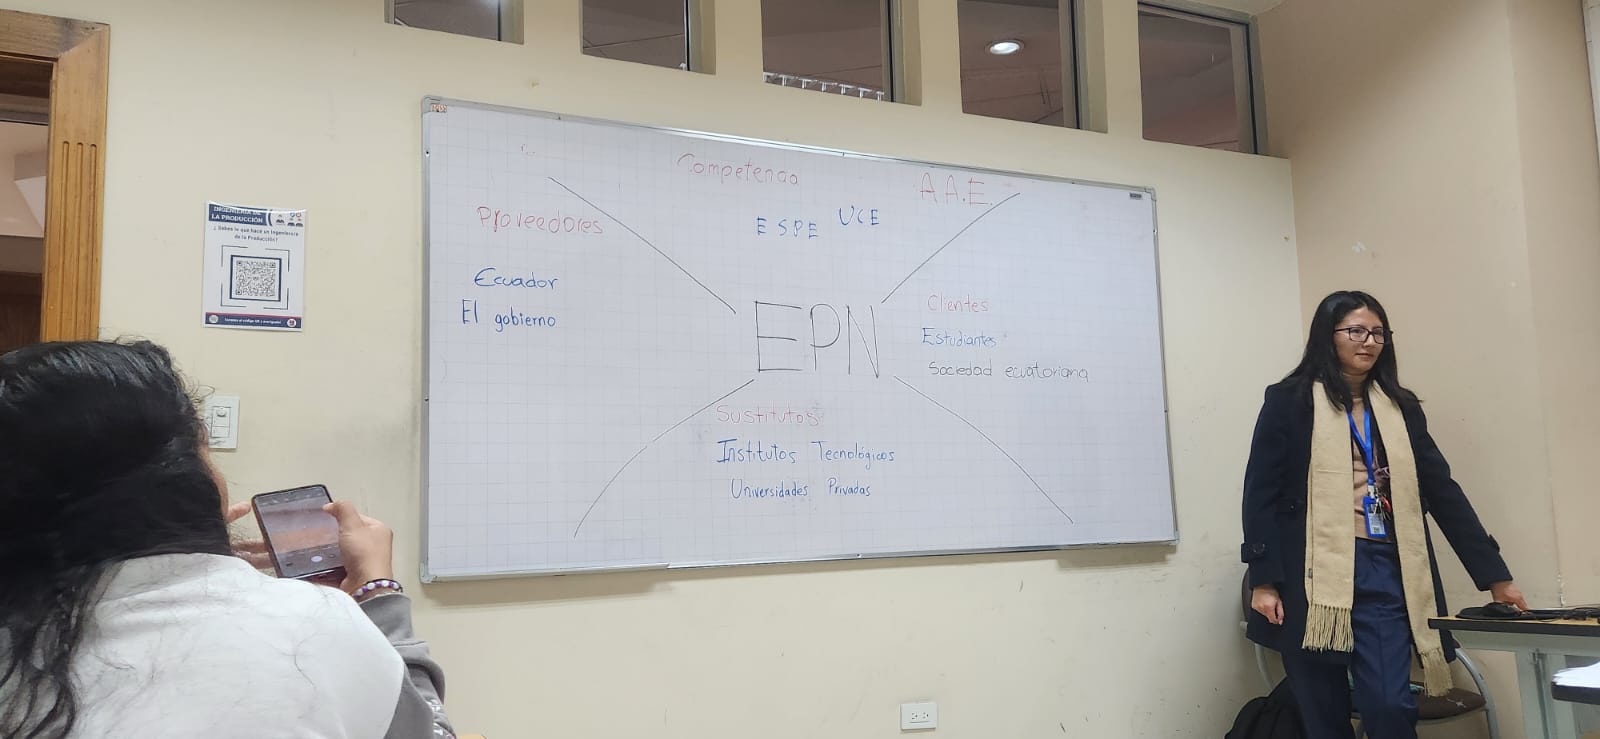 INGENIERÍA DE
LA PRODUCCIÓN
¿Sabes lo que hace un Ingeniero/a
de la Producción?
Competencia
A.A.E.
Proveedores
ESPE UCE
Ecuador
El gobierno
EPN
Clientes
Estudiantes
Sociedad ecuatoriana
Sustitutos
Institutos Tecnológicos
Universidades Privadas